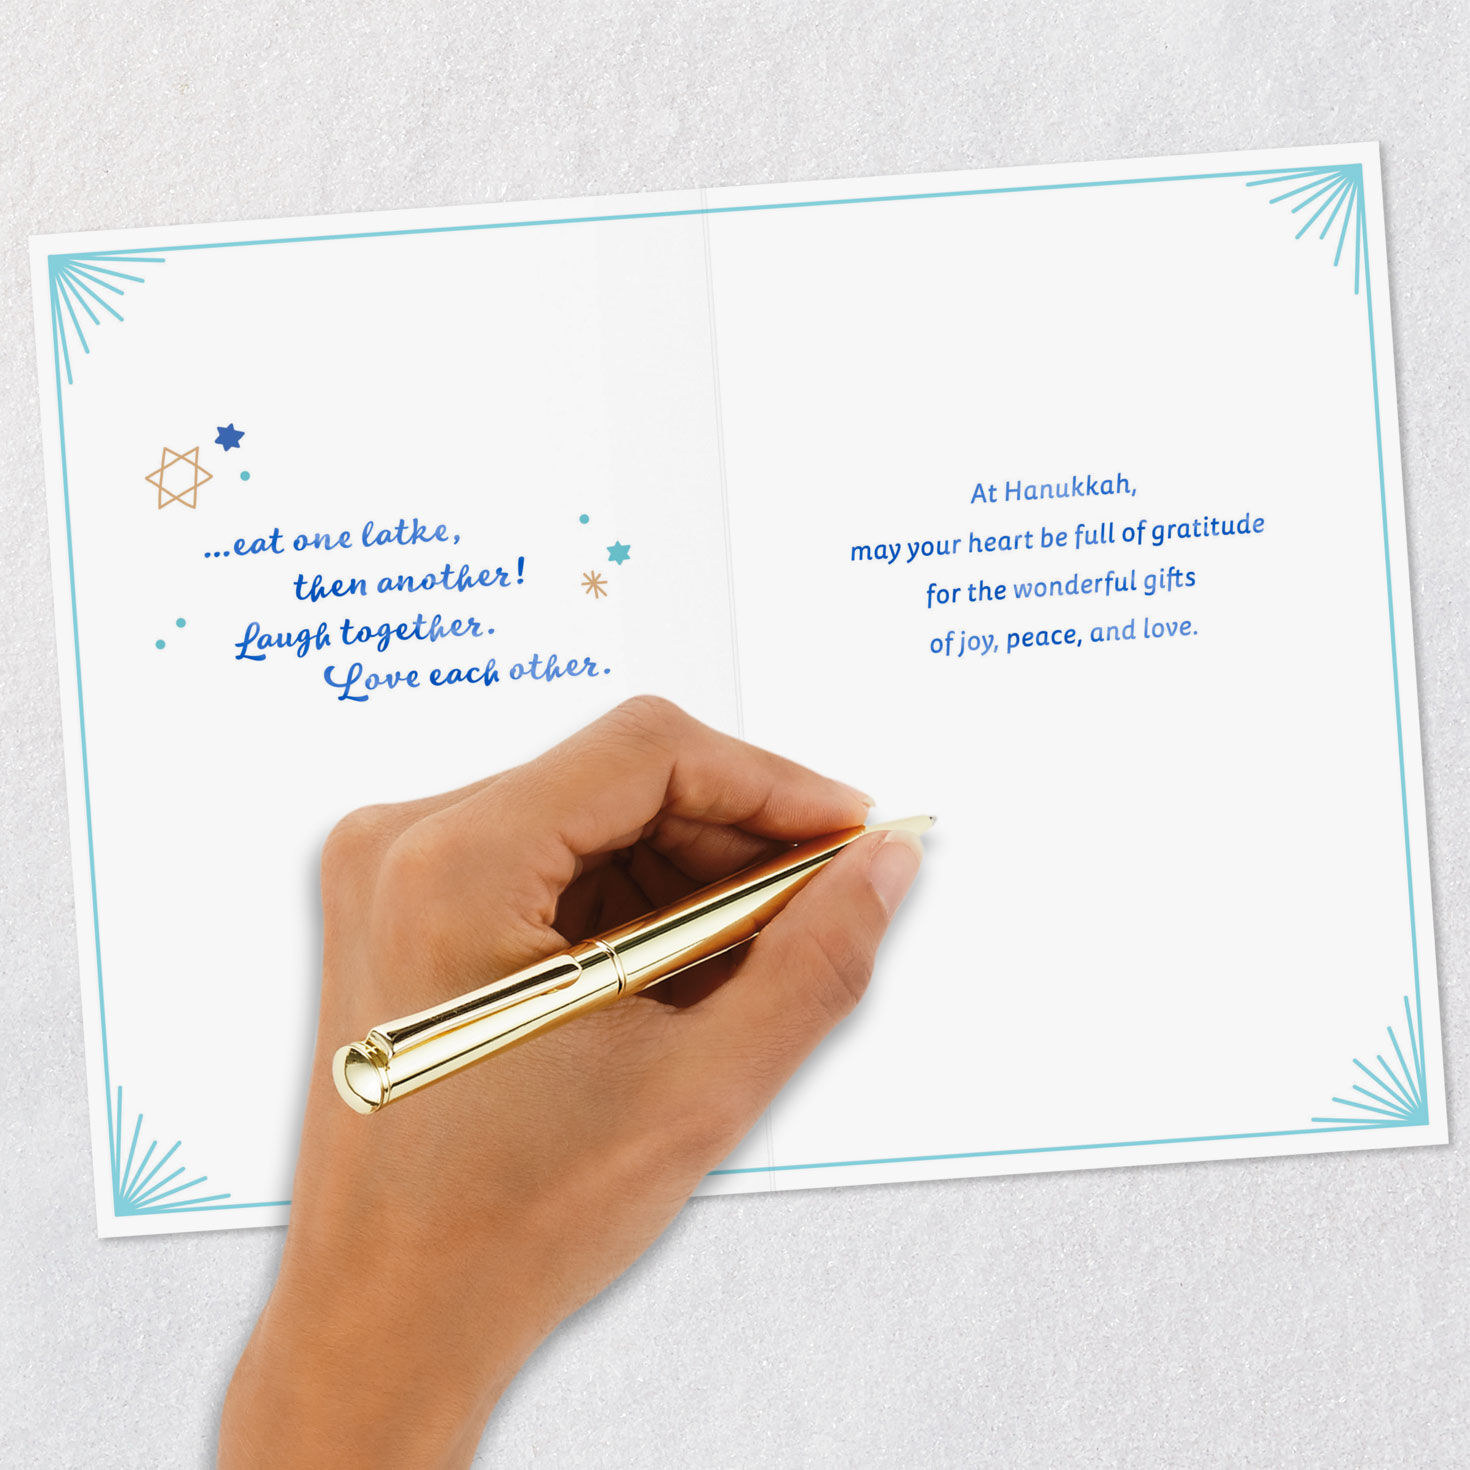 ...eat one latke,
then another!
Laugh together.
Love each other.
At Hanukkah,
may your heart be full of gratitude
for the wonderful gifts
of joy, peace, and love.